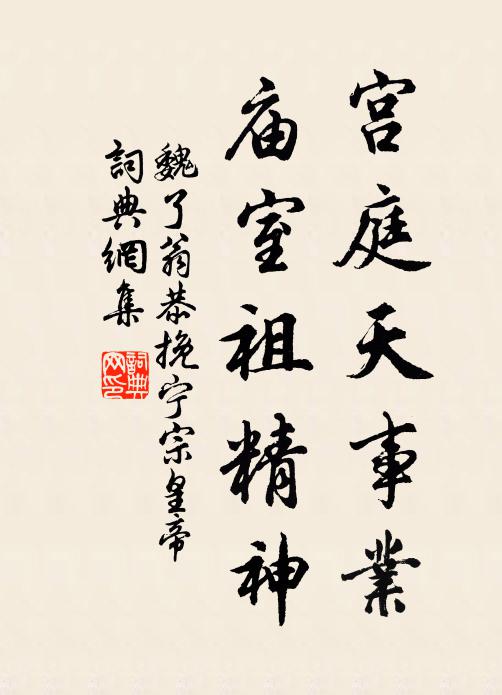 宫庭天事業
庙室祖精神
魏了翁恭挽宁宗皇帝
詞典網集
詞典网印